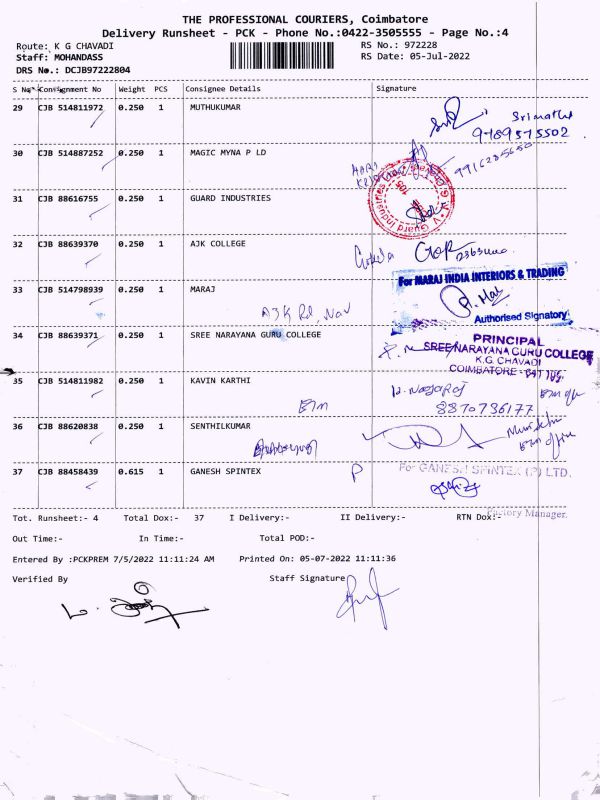 THE PROFESSIONAL COURIERS, Coimbatore
Delivery Runsheet - PCK - Phone No.:0422-3505555 - Page No.:4
Route: K G CHAVADI
RS No.: 972228
Staff: MOHANDASS
RS Date: 05-Jul-2022
DRS No.: DCJB97222804
S No Consignment No Weight PCS Consignee Details Signature
29 CJB 514811972 0.250 1 MUTHUKUMAR
Srimathi
9789575502
30 CJB 514887252 0.250 1 MAGIC MYNA P LD
HARI
31 CJB 88616755 0.250 1 GUARD INDUSTRIES
V Guard Industries
105
32 CJB 88639370 0.250 1 AJK COLLEGE
33 CJB 514798939 0.250 1 MARAJ
AJK Rd, Nav
For MARAJ INDIA INTERIORS & TRADING
Authorised Signatory
34 CJB 88639371 0.250 1 SREE NARAYANA GURU COLLEGE
PRINCIPAL
SREE NARAYANA GURU COLLEGE
K.G. CHAVADI
COIMBATORE - 641 105.
35 CJB 514811982 0.250 1 KAVIN KARTHI
8870736177
36 CJB 88620838 0.250 1 SENTHILKUMAR
37 CJB 88458439 0.615 1 GANESH SPINTEX
P
For GANESH SPINTEX (P) LTD.
Factory Manager.
Tot. Runsheet:- 4 Total Dox:- 37 I Delivery:- II Delivery:- RTN Dox:-
Out Time:- In Time:- Total POD:-
Entered By :PCKPREM 7/5/2022 11:11:24 AM Printed On: 05-07-2022 11:11:36
Verified By Staff Signature